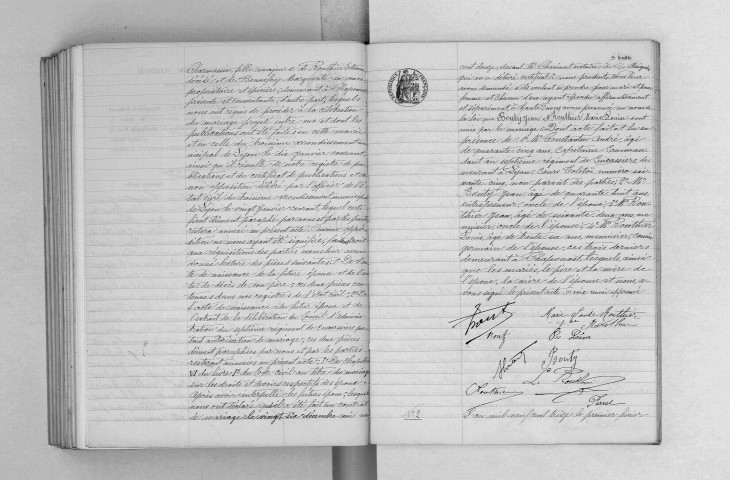 Chaponnay, fille majeure de Routhier Etienne
décédé, et de Bonnefoy Marguerite, sa veuve
propriétaire et épicière, demeurant à Chaponnay
présente et consentante, d'autre part, lesquels
nous ont requis de procéder à la célébration
du mariage projeté entre eux et dont les
publications ont été faites en cette mairie
et en celle du troisième arrondissement mu-
nicipal de Lyon le dix janvier courant,
ainsi qu'il résulte de notre registre de pu-
blications et du certificat de publications et de
non opposition délivré par l'officier de l'é-
tat civil du troisième arrondissement municipal
de Lyon le vingt janvier courant lequel certi-
ficat dûment paraphé par nous et par les parties
restera annexé au présent acte. Aucune oppo-
sition ne nous ayant été signifiée, faisant droit
aux réquisitions des parties nous leur avons
donné lecture des pièces suivantes: 1° De l'ac-
te de naissance de la future épouse et de l'ac-
te de décès de son père; ces deux pièces con-
tenues dans nos registres de l'état civil; 2° De
l'acte de naissance du futur époux et de
l'extrait de la délibération du Conseil d'adminis-
tration du septième régiment de cuirassiers por-
tant autorisation de mariage; ces deux pièces
dûment paraphées par nous et par les parties
resteront annexées au présent acte; 3° Du chapitre
VI du livre 1er du Code civil au titre du mariage
sur les droits et devoirs respectifs des époux.
Après avoir interpellé les futurs époux, lesquels
nous ont déclaré qu'il a été fait un contrat
de mariage le vingt six décembre mil neuf
cent douze, devant Me notaire à
qui en a délivré certificat à nous produit, nous leur
avons demandé s'ils veulent se prendre pour mari et pour
femme et chacun d'eux ayant répondu affirmativement
et séparément à haute voix, avons prononcé au nom de
la loi que Bouty Jean et Routhier Marie Louise sont
unis par le mariage. Dont acte fait et lu en
présence de 1° Mr Constantin André, âgé
de quarante cinq ans, Capitaine Comman-
dant au septième régiment de Cuirassiers de-
meurant à Lyon Cours numéro soi-
xante cinq, non parent des parties; 2° Mr
Jean, âgé de quarante huit ans,
entrepreneur, oncle de l'épouse; 3° Mr Rou-
thier Jean, âgé de soixante deux ans, me-
nuisier, oncle de l'épouse; 4° Mr Routhier
Louis, âgé de trente six ans, menuisier, cousin
germain de l'épouse; ces trois derniers
demeurant à Chaponnay lesquels ainsi
que les mariés, le père et la mère de
l'époux, la mère de l'épouse et nous, a-
vons signé le présent acte
Marie Louise Routhier
Bouty
L. Routhier
N° 2
L'an mil neuf cent treize le premier février